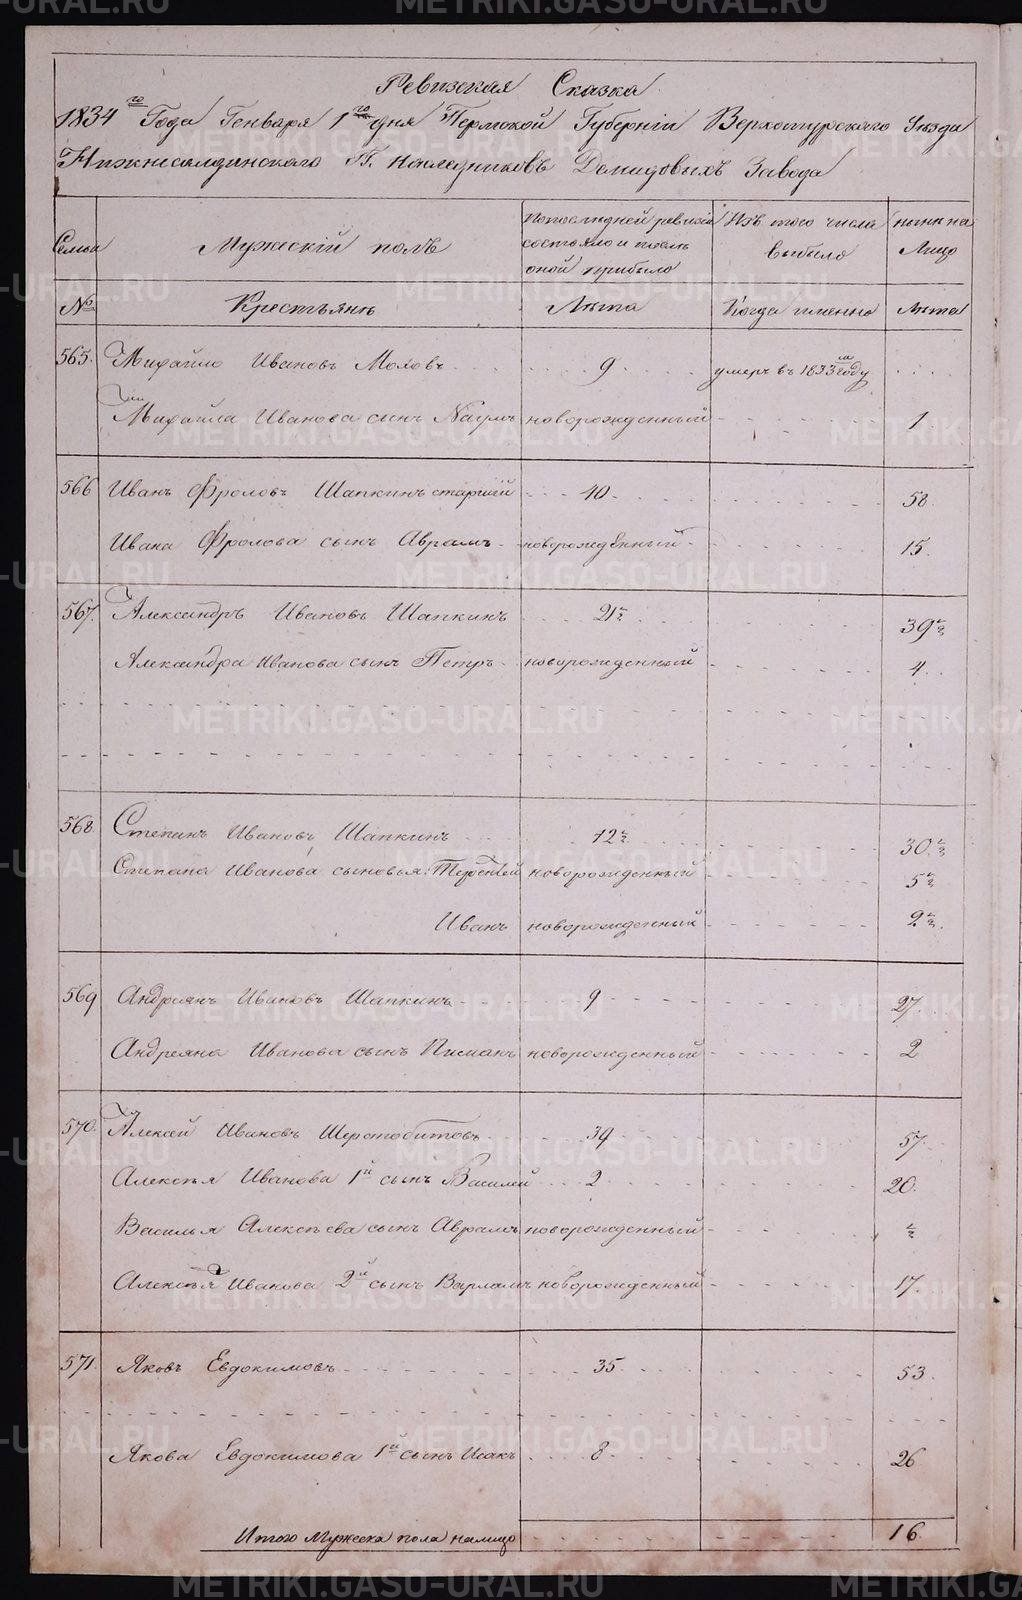 Ревизская Сказка
1834го Года Генваря 1го дня Пермской Губернiи Верхотурскаго Уѣзда
Нижнесалдинскаго Г. наследниковъ Демидовыхъ Завода
Семьи
Мужескiй полъ
По последней ревизiи состояло и после оной прибыло
Изъ того числа выбыло
ныне на Лицо
№
Крестьяне
Лѣта
Когда именно
Лѣта
565. Михайло Ивановъ Моховъ 9 умеръ въ 1833м году
Михайла Иванова сынъ Наумъ новорожденный 1
566 Иванъ Фроловъ Шапкинъ старшiй 40 58
Ивана Фролова сынъ Аврамъ новорожденный 15.
567. Александръ Ивановъ Шапкинъ 21½ 39½
Александра Иванова сынъ Петръ новорожденный 4
568. Степанъ Ивановъ Шапкинъ 12½ 30½
Степана Иванова сыновья: Терентей новорожденный 5½
Иванъ новорожденный 2½
569 Андреянъ Ивановъ Шапкинъ 9 27.
Андреяна Иванова сынъ Пиманъ новорожденный 2
570. Алексей Ивановъ Шерстобитовъ 39 57.
Алексѣя Иванова 1й сынъ Василей 2 20.
Василья Алексѣева сынъ Аврамъ новорожденный ½
Алексѣя Иванова 2й сынъ Варламъ новорожденный 17.
571. Яковъ Евдокимовъ 35 53.
Якова Евдокимова 1й сынъ Исакъ 8 26
Итого Мужеска пола налицо 16
METRIKI.GASO-URAL.RU